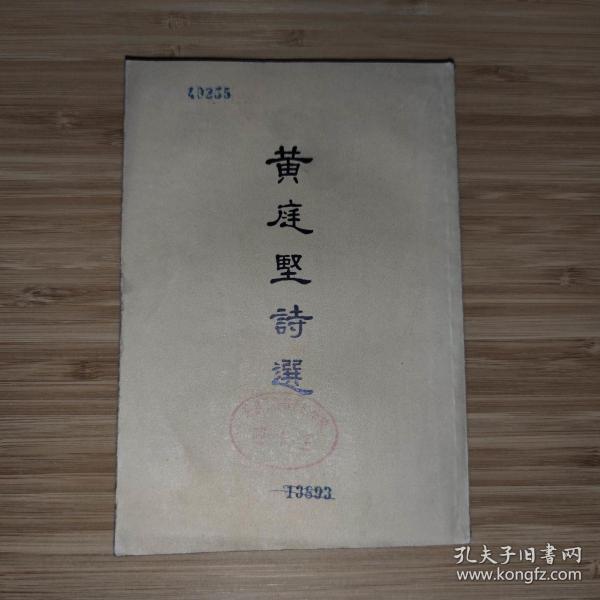 49255
黄庭堅詩選
13893
孔夫子旧書网
www.kongfz.com